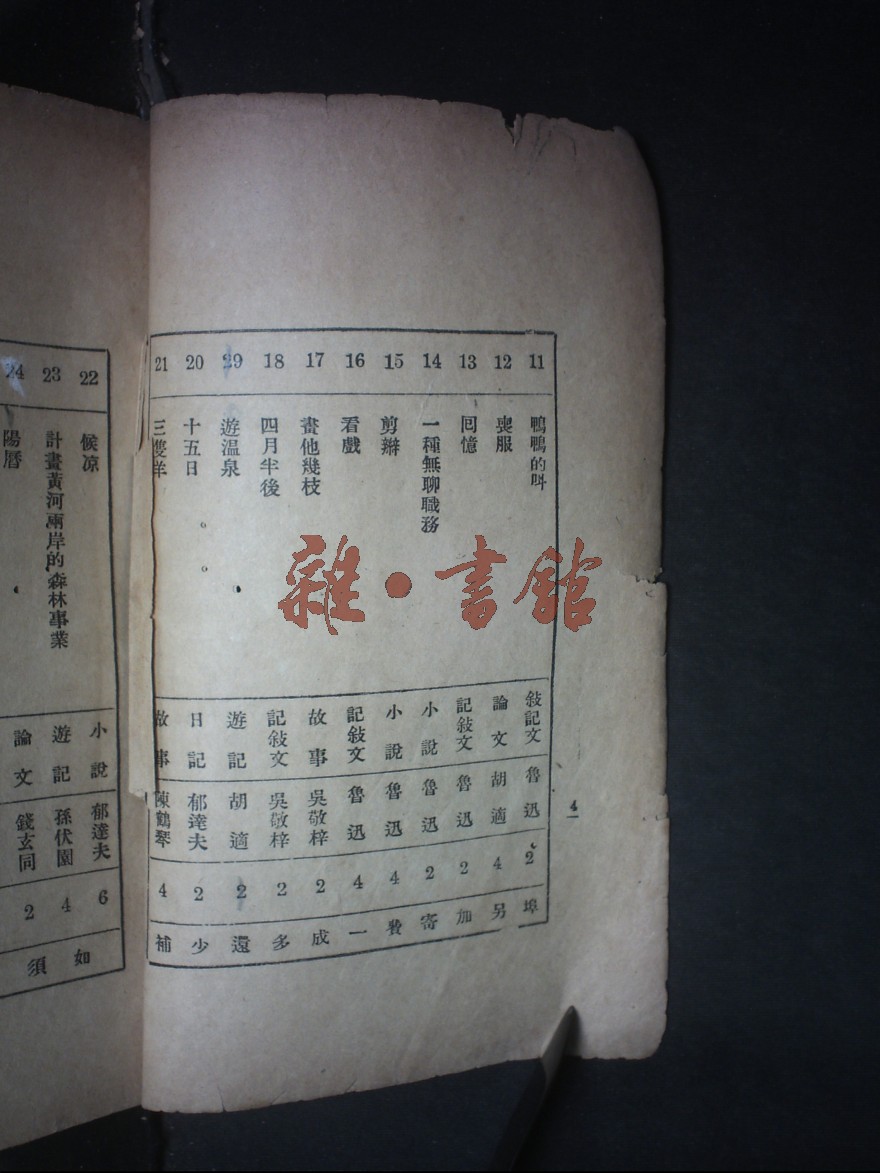 4
11 鴨鴨的叫 敍記文 魯迅 2 埠
12 喪服 論文 胡適 4 另
13 回憶 記敍文 魯迅 2 加
14 一種無聊職務 小說 魯迅 2 寄
15 剪辮 小說 魯迅 4 費
16 看戲 記敍文 魯迅 4 一
17 畫他幾枝 故事 吳敬梓 2 成
18 四月半後 記敍文 吳敬梓 2 多
29 遊溫泉 遊記 胡適 2 還
20 十五日 日記 郁達夫 2 少
21 三雙羊 故事 陳鶴琴 4 補
22 候凉 小說 郁達夫 6 如
23 計畫黃河兩岸的森林事業 遊記 孫伏園 4
24 陽曆 論文 錢玄同 2 須
雜·書館